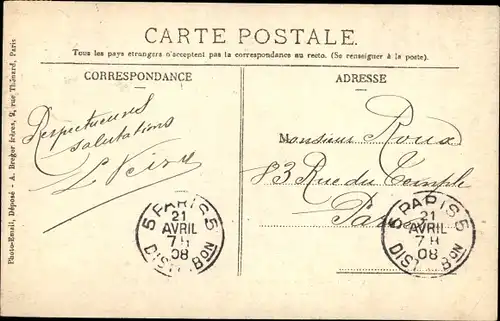 CARTE POSTALE.
Tous les pays étrangers n'acceptent pas la correspondance au recto. (Se renseigner à la poste).
CORRESPONDANCE
ADRESSE
Respectueuses
salutations
L
Monsieur Roux
83 Rue du Temple
Paris
5 PARIS 5
21
AVRIL
7H
08
DISTRIBON
5 PARIS 5
21
AVRIL
7H
08
DISTRIBON
Photo-Email, Déposé - A. Breger frères, 9, rue Thénard, Paris